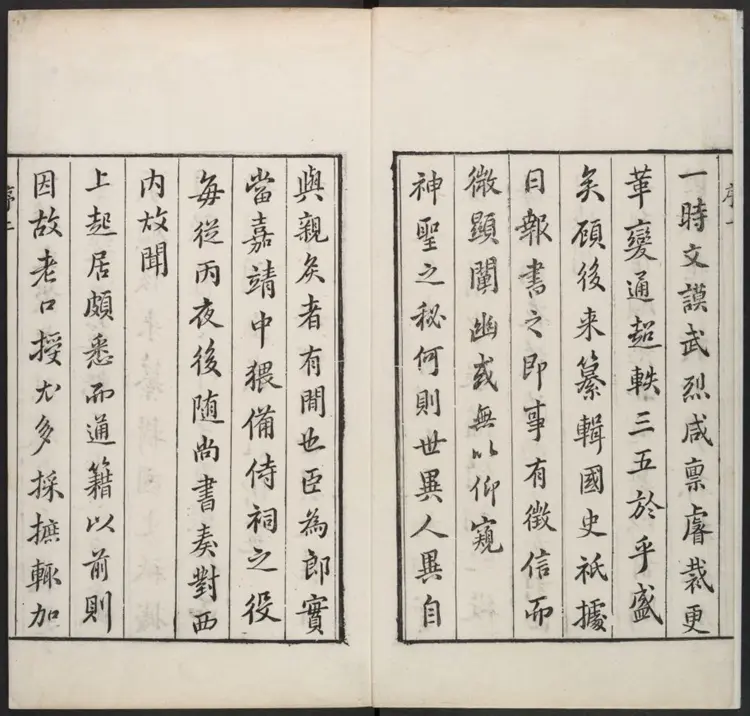 一時文謨武烈咸禀睿裁更
革變通超軼三五於乎盛
矣顧後来纂輯國史祇據
日報書之即事有徵信而
微顯闡幽或無以仰窺
神聖之秘何則世異人異自
與親炙者有間也臣為郎實
當嘉靖中猥備侍祠之役
每從丙夜後随尚書奏對西
内故聞
上起居頗悉而通籍以前則
因故老口授尤多採摭輒加